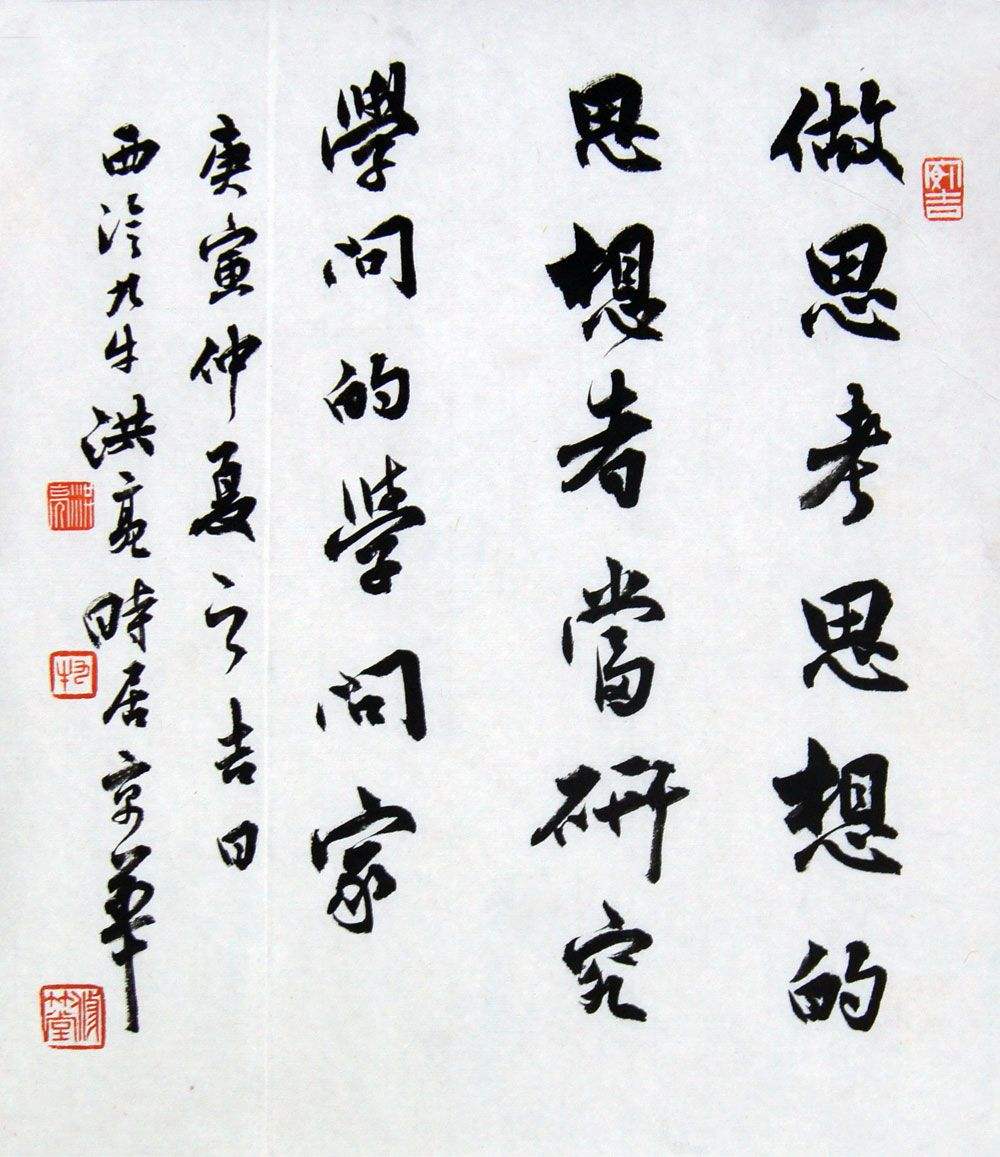 做思考思想的
思想者當研究
學問的學問家
庚寅仲夏之吉日
西泠九牛洪亮時居京華
洪亮